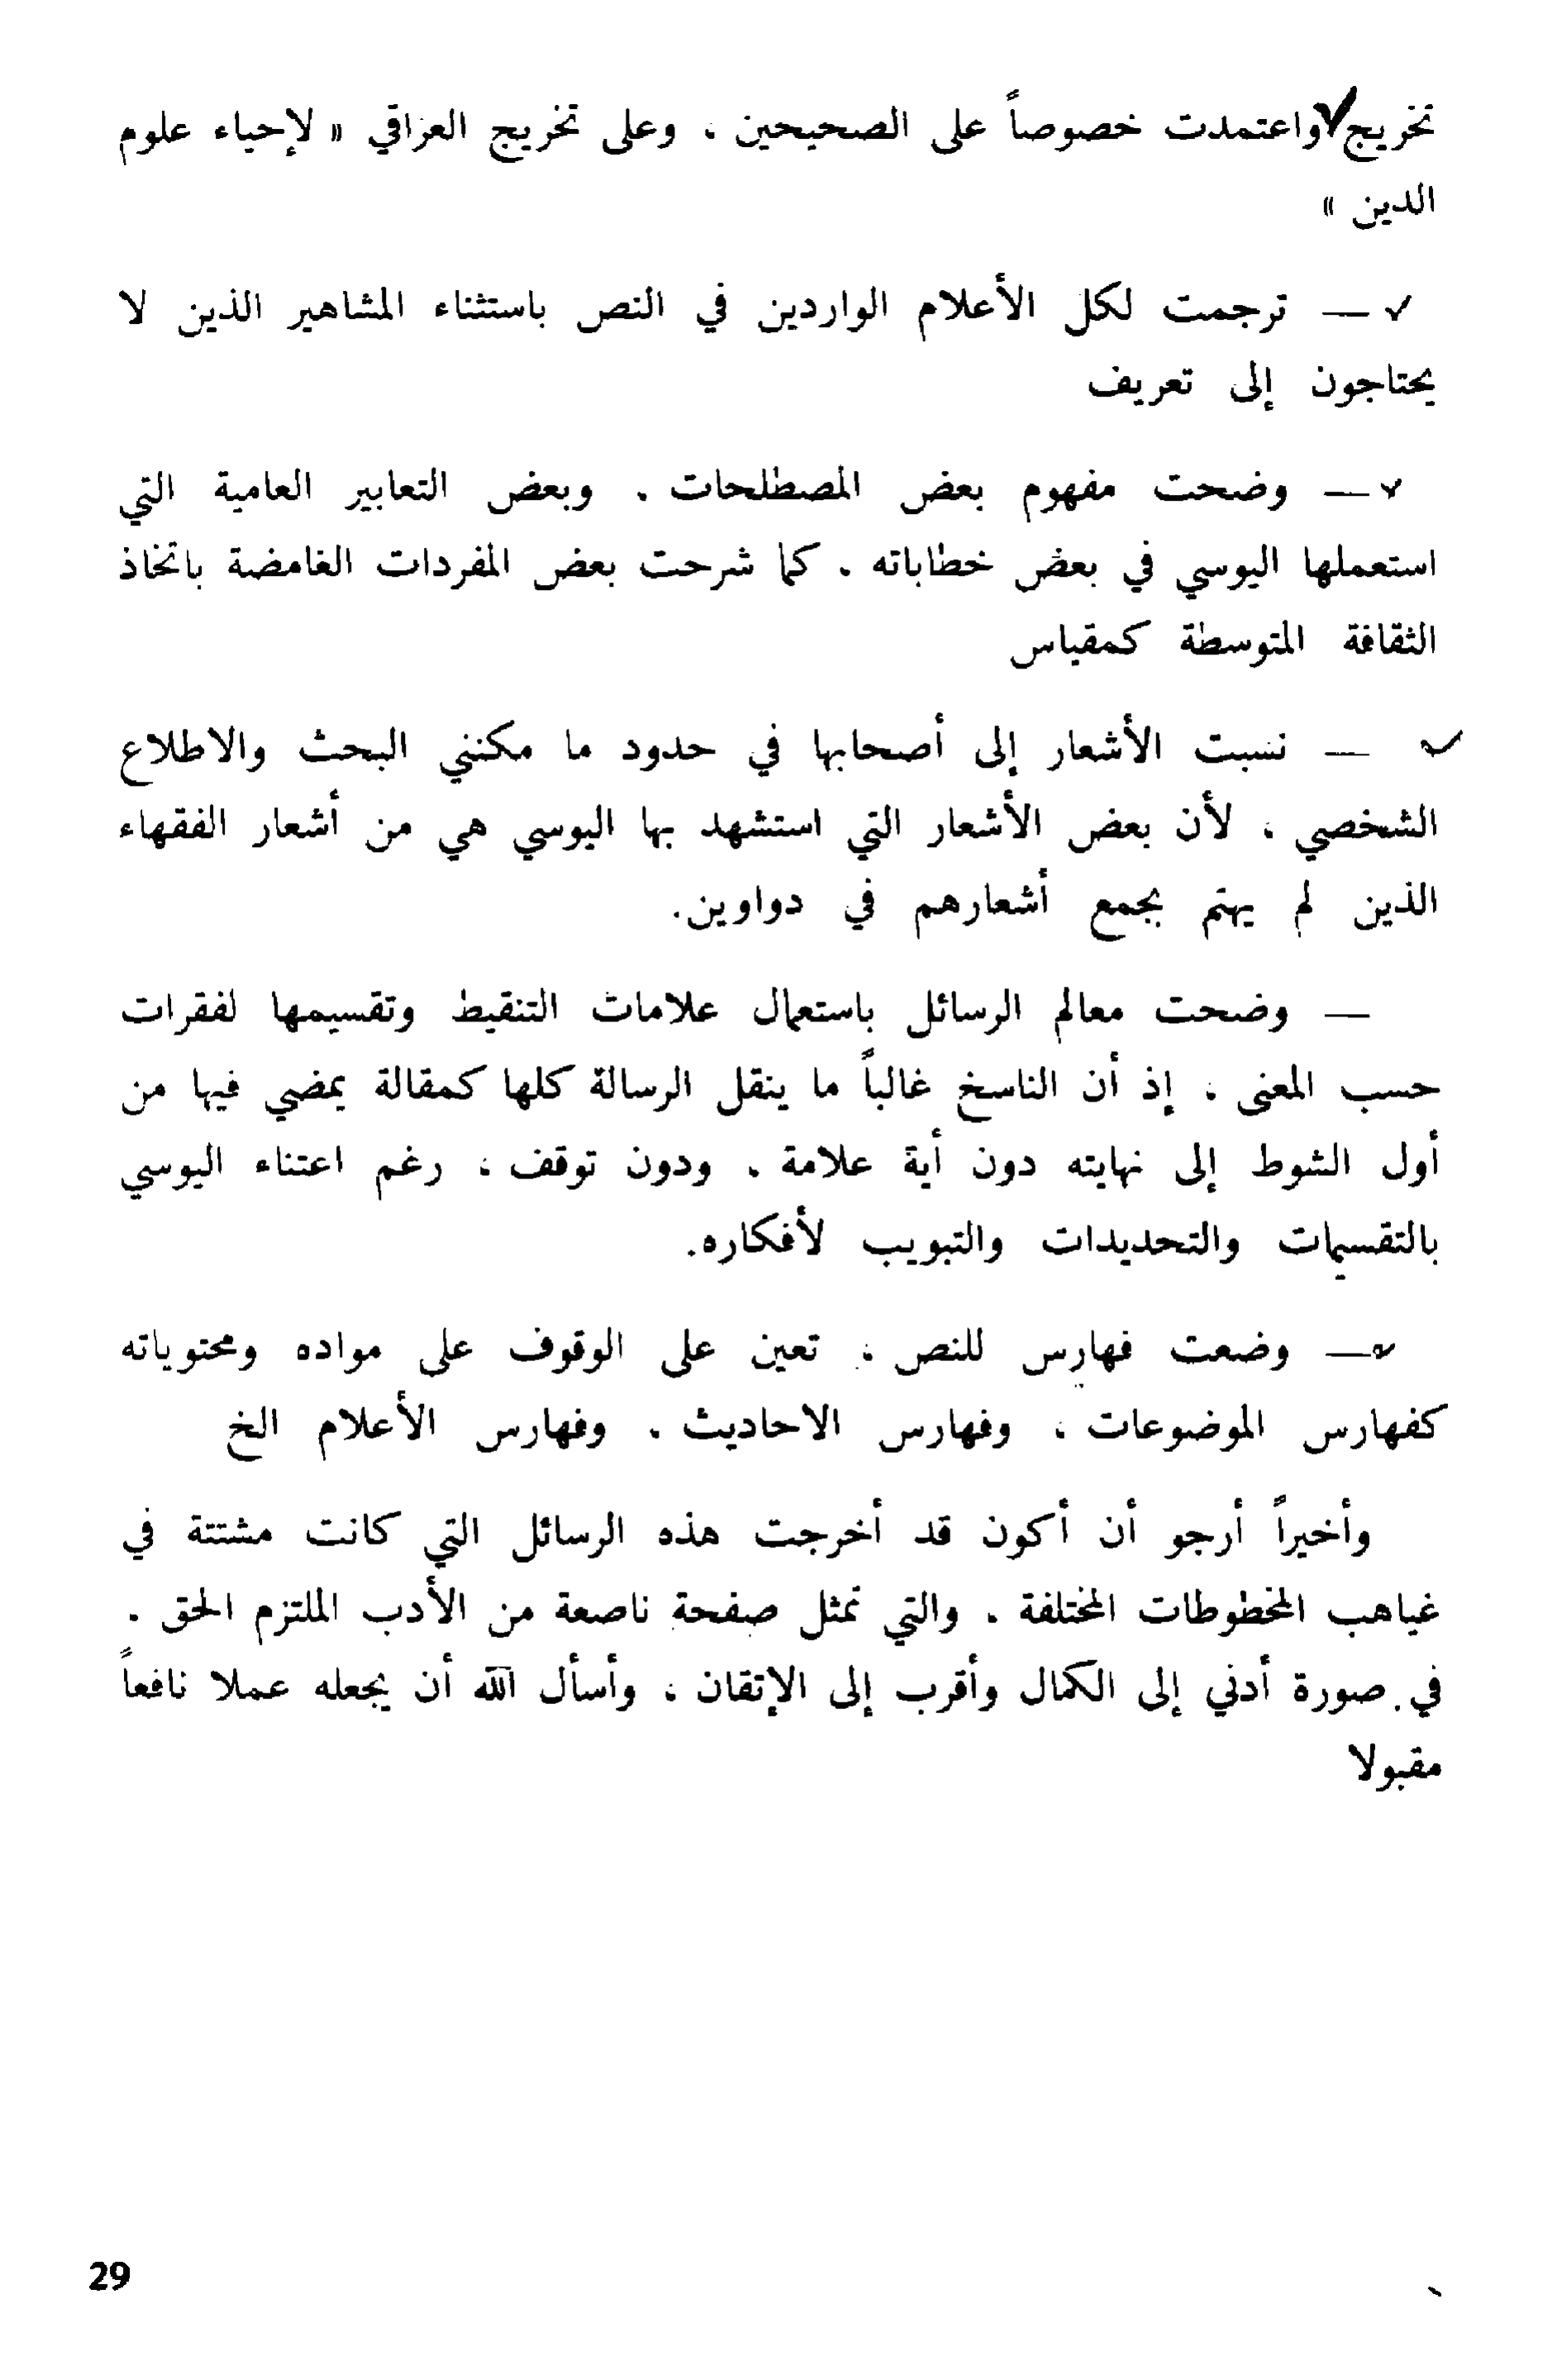 تخريج واعتمدت خصوصاً على الصحيحين ، وعلى تخريج العراقي « لإحياء علوم
الدين »
✓ — ترجمت لكل الأعلام الواردين في النص باستثناء المشاهير الذين لا
يحتاجون إلى تعريف
✓ — وضحت مفهوم بعض المصطلحات . وبعض التعابير العامية التي
استعملها اليوسي في بعض خطاباته . كما شرحت بعض المفردات الغامضة باتخاذ
الثقافة المتوسطة كمقياس
✓ — نسبت الأشعار إلى أصحابها في حدود ما مكنني البحث والاطلاع
الشخصي ، لأن بعض الأشعار التي استشهد بها اليوسي هي من أشعار الفقهاء
الذين لم يهتم بجمع أشعارهم في دواوين.
— وضحت معالم الرسائل باستعمال علامات التنقيط وتقسيمها لفقرات
حسب المعنى ، إذ أن الناسخ غالباً ما ينقل الرسالة كلها كمقالة يمضي فيها من
أول الشوط إلى نهايته دون أية علامة . ودون توقف ، رغم اعتناء اليوسي
بالتقسيمات والتحديدات والتبويب لأفكاره.
✓ — وضعت فهارس للنص ، تعين على الوقوف على مواده ومحتوياته
كفهارس الموضوعات ، وفهارس الاحاديث . وفهارس الأعلام الخ
وأخيراً أرجو أن أكون قد أخرجت هذه الرسائل التي كانت مشتتة في
غياهب المخطوطات المختلفة . والتي تمثل صفحة ناصعة من الأدب الملتزم الحق .
في صورة أدني إلى الكمال وأقرب إلى الإتقان ، وأسأل الله أن يجعله عملا نافعاً
مقبولا
29